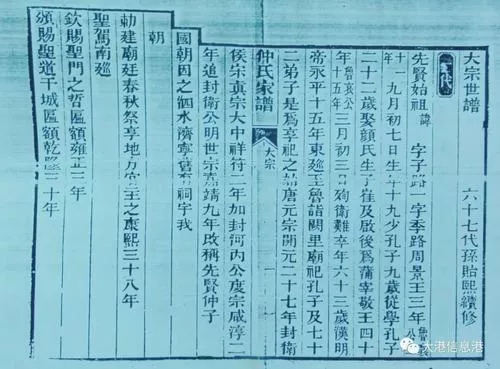 大宗世譜
六十七代孫貽熙續修
先賢始祖諱 字子路一字季路周景王三年
十一 九月初七日生年十九少孔子九歲從學孔子
二十二歲娶顏氏生子崔及啟後為蒲宰敬王四十
年魯哀公十五年三月初三日殉衛難卒年六十三歲漢明
帝永平十五年東巡至魯詣闕里廟祀孔子及七十
二弟子是為享祀之始唐元宗開元二十七年封衛
仲氏家譜 大宗
侯宋真宗大中祥符二年加封河內公度宗咸淳二
年追封衛公明世宗嘉靖九年改稱先賢仲子
國朝因之泗水濟寧舊有祠宇我
朝
勅建廟廷春秋祭享地方官主之康熙三十八年
聖駕南巡
欽賜聖門之哲匾額雍正三年
頒賜聖道干城匾額乾隆三十年
大港信息港